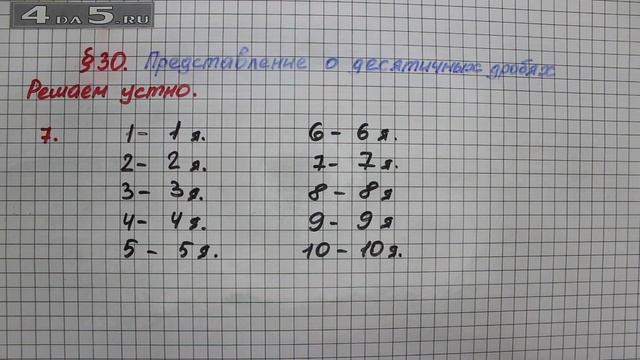 4 DA 5.RU
§30. Представление о десятичных дробях
Решаем устно.
7. 1 - 1 я. 6 - 6 я.
2 - 2 я. 7 - 7 я.
3 - 3 я. 8 - 8 я
4 - 4 я. 9 - 9 я
5 - 5 я. 10 - 10 я.